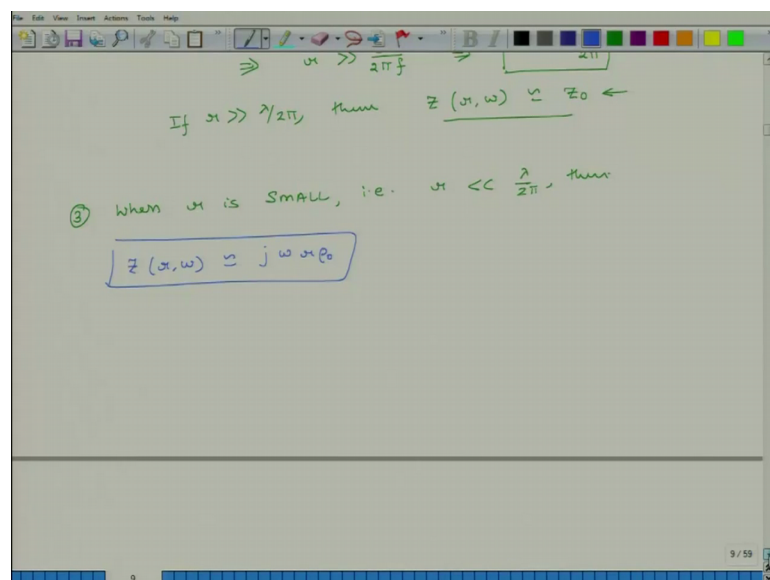 File Edit View Insert Actions Tools Help
⇒ r >> 2πf ⇒ 2π
If r >> λ/2π, then Z (r, ω) ≃ Z0 ←
③ When r is SMALL, i.e. r << λ/2π, then
Z (r, ω) ≃ j ω r ρ0
9 / 59
9